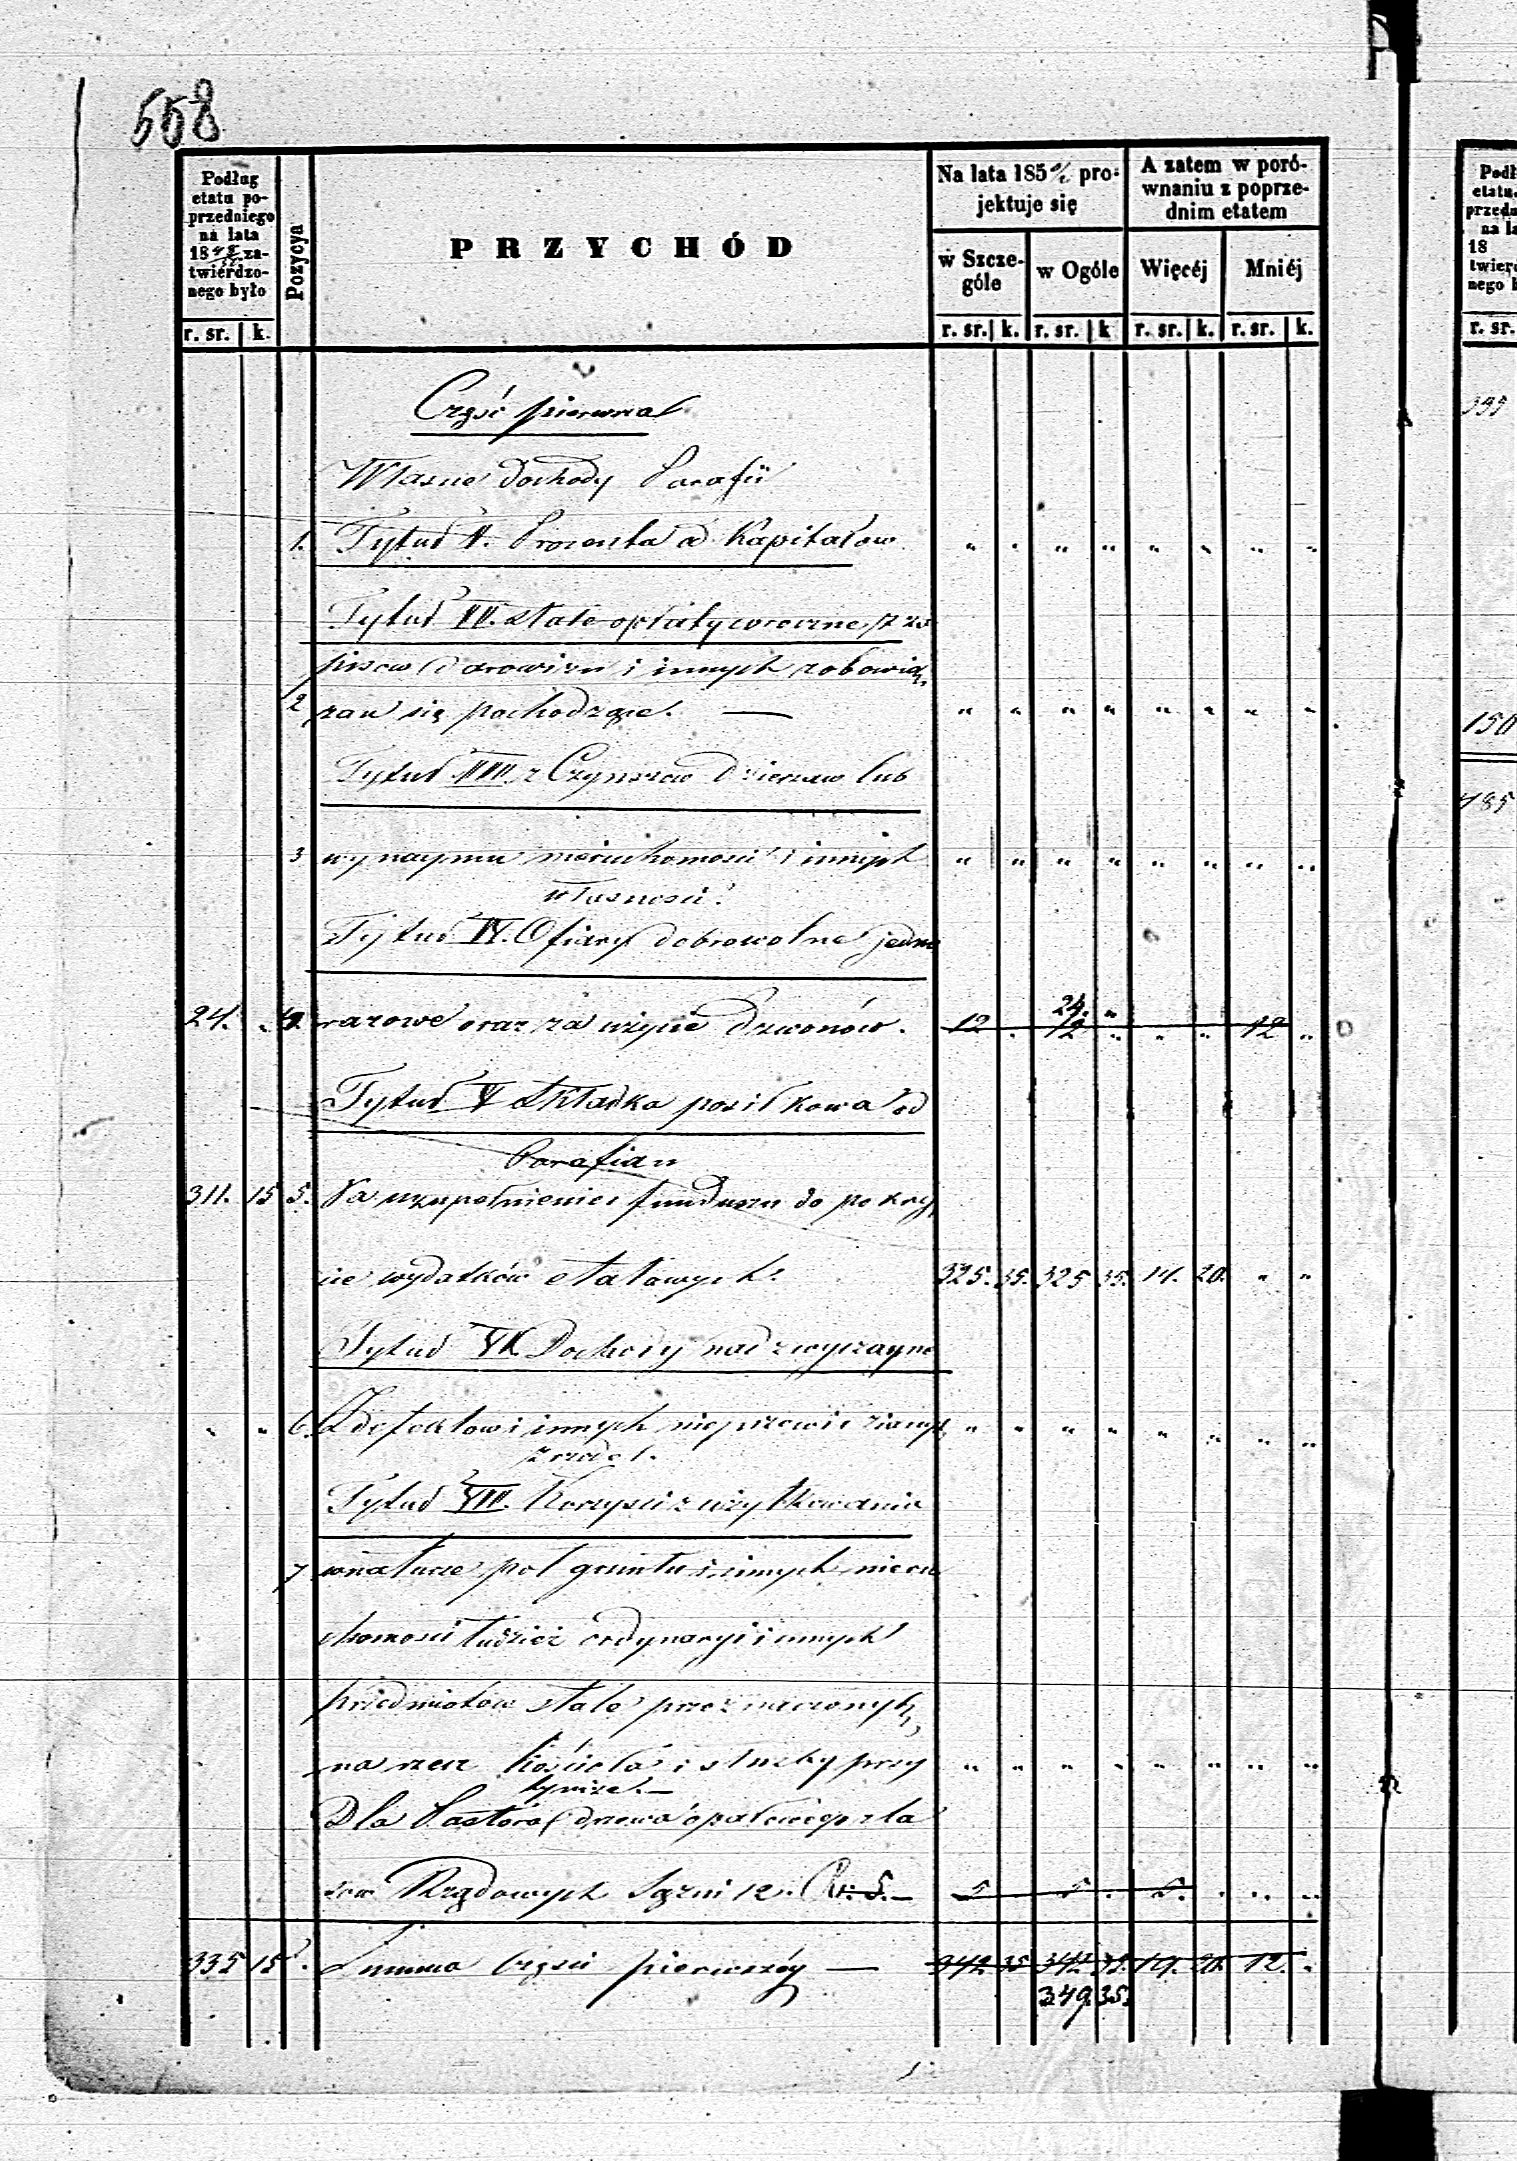 558
Podług etatu poprzedniego na lata 18 zatwierdzonego było
Pozycya
PRZYCHÓD
Na lata 185 projektuje się
A zatem w porównaniu z poprzednim etatem
w Szczególe
w Ogóle
Więcéj
Mniéj
r. sr. k. r. sr. k. r. sr. k r. sr. k. r. sr. k.
Część pierwsza
Własne Dochody Parafii
1. Tytuł I. Procenta od Kapitałow " " " " " " " "
Tytuł II. Stałe opłaty wieczne, z za
pisow darowizn i innych zobowią
2 zan się pochodzące. — " " " " " " " "
Tytuł III z Czynszów Dzierzaw lub
3 wynaymu nieruchomosci i innych " " " " " " " "
własnosci.
Tytuł IV. Ofiary dobrowolne jedno
24. " 4. razowe oraz za użycie Dzwonów. 12 . 24. " 12 " " " 12 "
Tytuł V Składka posiłkowa od
Parafian
311. 15 5. Na uzupełnienie funduszu do pokry
cie wydatków etatowych. 325. 35. 325 35. 14. 20. " "
Tytuł VI. Dochody nadzwyczayne
" " 6. Z defektow i innych nieprzewidzianych " " " " " " " "
zrodeł.
Tytuł VII. Korzysci z użytkowania
7 w naturze pol gruntu i innych nieru
chomosci tudzież ordynaryi i innych
przedmiotów stale przeznaczonych
na rzecz Kościoła i służby przy " " " " " " " "
tymże. —
Dla Pastora drzewa opałowego z la
sow Rządowych Sążni 12. Rs. 5. — 5 5 . 5. . " "
335 15 . Summa Części pierwszéy — 342 35 342 35. 19. 20. 12. "
349 35.
Podł
etatu
przedn
na la
18
twierd
nego b
r. sr.
150
485